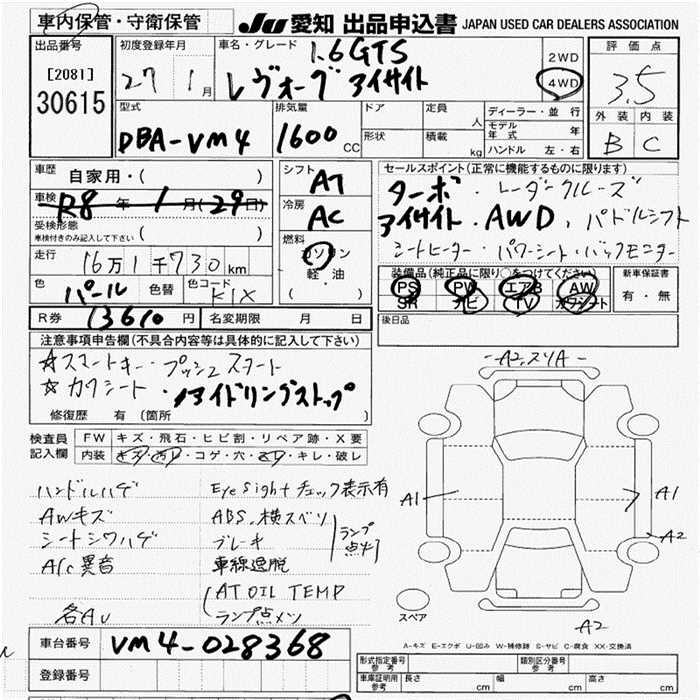 車内保管・守衛保管 JU 愛知 出品申込書 JAPAN USED CAR DEALERS ASSOCIATION
出品番号 初度登録年月 車名・グレード 1.6GTS 2WD 評価点
[2081] 27 1月 レヴォーグ アイサイト 4WD 3.5
30615
型式 排気量 ドア 定員 人 ディーラー・並行 外装 内装
DBA-VM4 1600 CC 形状 積載 kg モデル年式 年 B C
ハンドル 左・右
車歴 自家用・( ) シフト AT セールスポイント(正常に機能するものに限ります)
車検 R8 年 1 月(29日) 冷房 AC ターボ・レーダークルーズ
受検形態 アイサイト・AWD、パドルシフト
車検付きのみ記入して下さい ( ) 燃料 シートヒーター・パワーシート・バックモニター
走行 16万1千730km ガソリン
軽・油 装備品(純正品に限り○をつけてください) 新車保証書
色 パール 色替 色コード K1X ( ) PS PW エアB AW 有・無
SR ナビ TV カワシート
R券 13610円 名変期限 月 日 後日品
注意事項申告欄(不具合内容等は具体的に記入して下さい)
☆スマートキー・プッシュスタート
☆カワシート・アイドリングストップ
修復歴 有 (箇所 )
A2,スリA
検査員 FW キズ・飛石・ヒビ割・リペア跡・X要
記入欄 内装 キズ・汚レ・コゲ・穴・スレ・キレ・破レ
ハンドルハゲ Eye Sightチェック表示有
AWキズ ABS.横スベリ ランプ点灯
シートシワハゲ ブレーキ
A/c異音 車線逸脱
AT OIL TEMP
各AU ランプ点メツ
A1 A1
A2
スペア A2
A-キズ E-エクボ U-凹み W-補修跡 S-サビ C-腐食 XX-交換済
車台番号 VM4-028368
登録番号 形式指定番号 参考 類別区分番号 参考
車庫証明用 参考 長さ cm 幅 cm 高さ cm